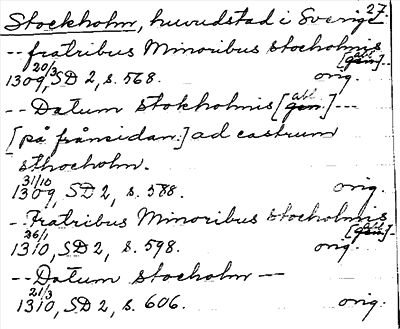 27.
Stockholm, huvudstad i Sverige
-- fratribus Minoribus stocholmis
[abl.]--
20/3
1309, SD 2, s. 568. orig.
-- Datum stokholmis [abl.] ---
[på frånsidan:] ad castrum
sthocholm.
31/10
1309, SD 2, s. 588. orig.
-- Fratribus Minoribus stocholmis
[abl.]--
26/1
1310, SD 2, s. 598. orig.
-- Datum stocholm --
21/3
1310, SD 2, s. 606. orig.